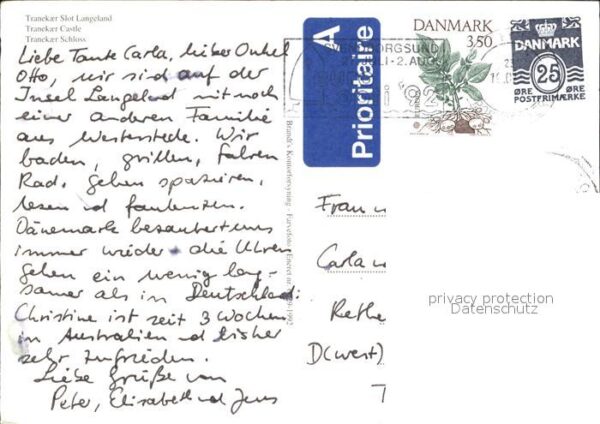 Tranekær Slot Langeland
Tranekær Castle
Tranekær Schloss
Liebe Tante Carla, lieber Onkel
Otto, wir sind auf der
Insel Langeland mit noch
einer anderen Familie
aus Westerstede. Wir
baden, grillen, fahren
Rad, gehen spazieren,
lesen und faulenzen.
Dänemark bezaubert uns
immer wieder - die Uhren
gehen ein wenig lang-
samer als in Deutschland.
Christine ist seit 3 Wochen
in Australien und bisher
sehr zufrieden.
Liebe Grüße von
Peter, Elisabeth und Jens
Brandt's Kontorforsyning - Farvefoto Eneret
1992
A
Prioritaire
DANMARK
3.50
DANMARK
25
ØRE ØRE
POSTFRIMÆRKE
LI - 2. AUG.
Frau
Carla
Rethe
D(west)
privacy protection
Datenschutz